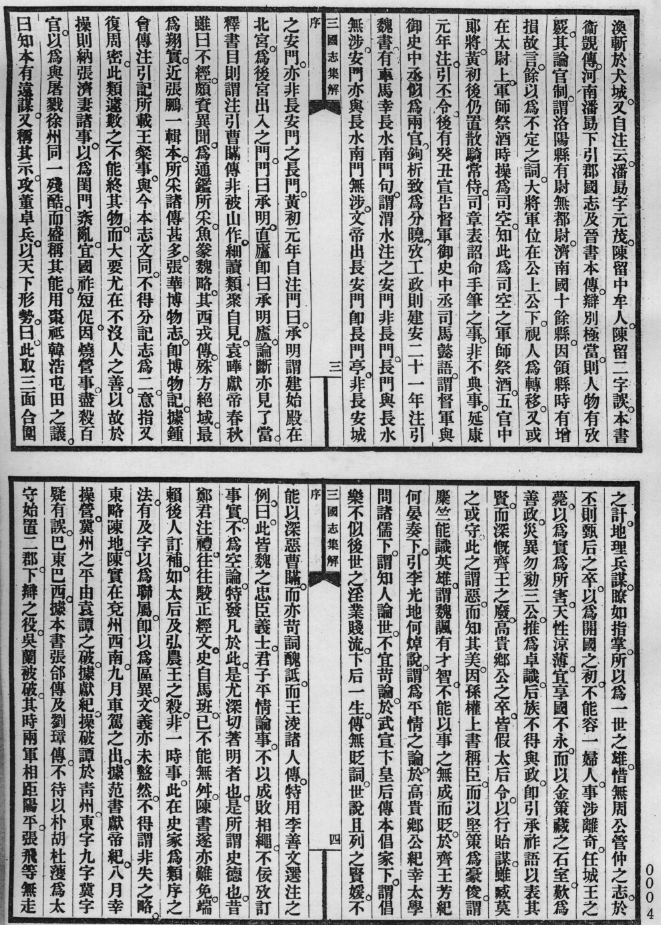 渙斬於犬城又自注云潘勗字元茂陳留中牟人陳留二字誤本書
衞覬傳河南潘勗下引郡國志及晉書本傳辯別極當則人物有攷
嚴其論官制謂洛陽縣有尉無都尉濟南國十餘縣因領縣時有增
損故言餘以爲不定之詞大將軍位在公上公下視人爲轉移又或
在太尉上軍師祭酒時操爲司空知此爲司空之軍師祭酒五官中
郎將黃初後仍置散騎常侍司章表詔命手筆之事非不典事延康
元年注引丕令後有癸丑宣告督軍御史中丞司馬懿語謂督軍與
御史中丞似爲兩官鉤析致爲分曉攷工政則建安二十一年注引
魏書有車馬幸長水南門句謂渭水注之安門非長門長門與長水
無涉安門亦與長水南門無涉文帝出長安門卽長門亭非長安城
三國志集解
序
三
之安門亦非長安門之長門黃初元年自注門曰承明謂建始殿在
北宮爲後宮出入之門門曰承明直廬卽曰承明廬論斷亦見了當
釋書目則謂注引曹瞞傳非被山作細讀類聚自見袁曄獻帝春秋
雖曰不經頗資異聞爲通鑑所采魚豢魏略其西戎傳殊方絕域最
爲翔實近張鵬一輯本所采諸傳甚多張華博物志卽博物記據鍾
會傳注引記所載王粲事與今本志文同不得分記志爲二意指又
復周密此類遽數之不能終其物而大要尤在不沒人之善以故於
操則納張濟妻諸事以爲閨門紊亂宜國祚短促因燒營事盡殺百
官以爲與屠戮徐州同一殘酷而盛稱其能用棗祗韓浩屯田之議
曰知本有遠謀又稱其示攻董卓兵以天下形勢曰此取三面合圍
之計地理兵謀瞭如指掌所以爲一世之雄惜無周公管仲之志於
丕則甄后之卒以爲開國之初不能容一婦人事涉離奇任城王之
薨以爲實爲所害天性涼薄宜享國不永而以金策藏之石室歎爲
善政災異勿劾三公推爲卓識后族不得與政卽引承祚語以表其
賢而深慨齊王之廢高貴鄉公之卒皆假太后令以行貽謀雖臧莫
之或守此之謂惡而知其美因孫權上書稱臣而以堅策爲豪俊謂
麋竺能識英雄謂魏諷有才智不能以事之無成而貶於齊王芳紀
何晏奏下引李光地何焯說謂爲平情之論於高貴鄉公紀幸太學
問諸儒下謂知人論世不宜苛論於武宣卞皇后傳本倡家下謂倡
樂不似後世之淫業賤流下后一生傳無貶詞世說且列之賢媛不
三國志集解
序
四
能以深惡曹瞞而亦苛詞醜詆而王淩諸人傳特用李善文選注之
例曰此皆魏之忠臣義士君子平情論事不以成敗相繩不佞攷訂
事實不爲空論特發凡於此是尤深切著明者也是所謂史德也昔
鄭君注禮往往駮正經文史自馬班已不能無舛陳書遂亦難免端
賴後人訂補如太后及弘農王之殺非一時事此在史家爲類序之
法有及字以爲聯屬卽以爲區異文義亦未盭然不得謂非失之略
東略陳地陳實在兗州西南九月車駕之出據范書獻帝紀八月幸
操營冀州之平由袁譚之破據獻紀操破譚於青州東字九字冀字
疑有誤巴東巴西據本書張郃傳及劉璋傳不待以朴胡杜濩爲太
守始置二郡下辯之役吳蘭被破其時兩軍相距陽平張飛等無走
0004